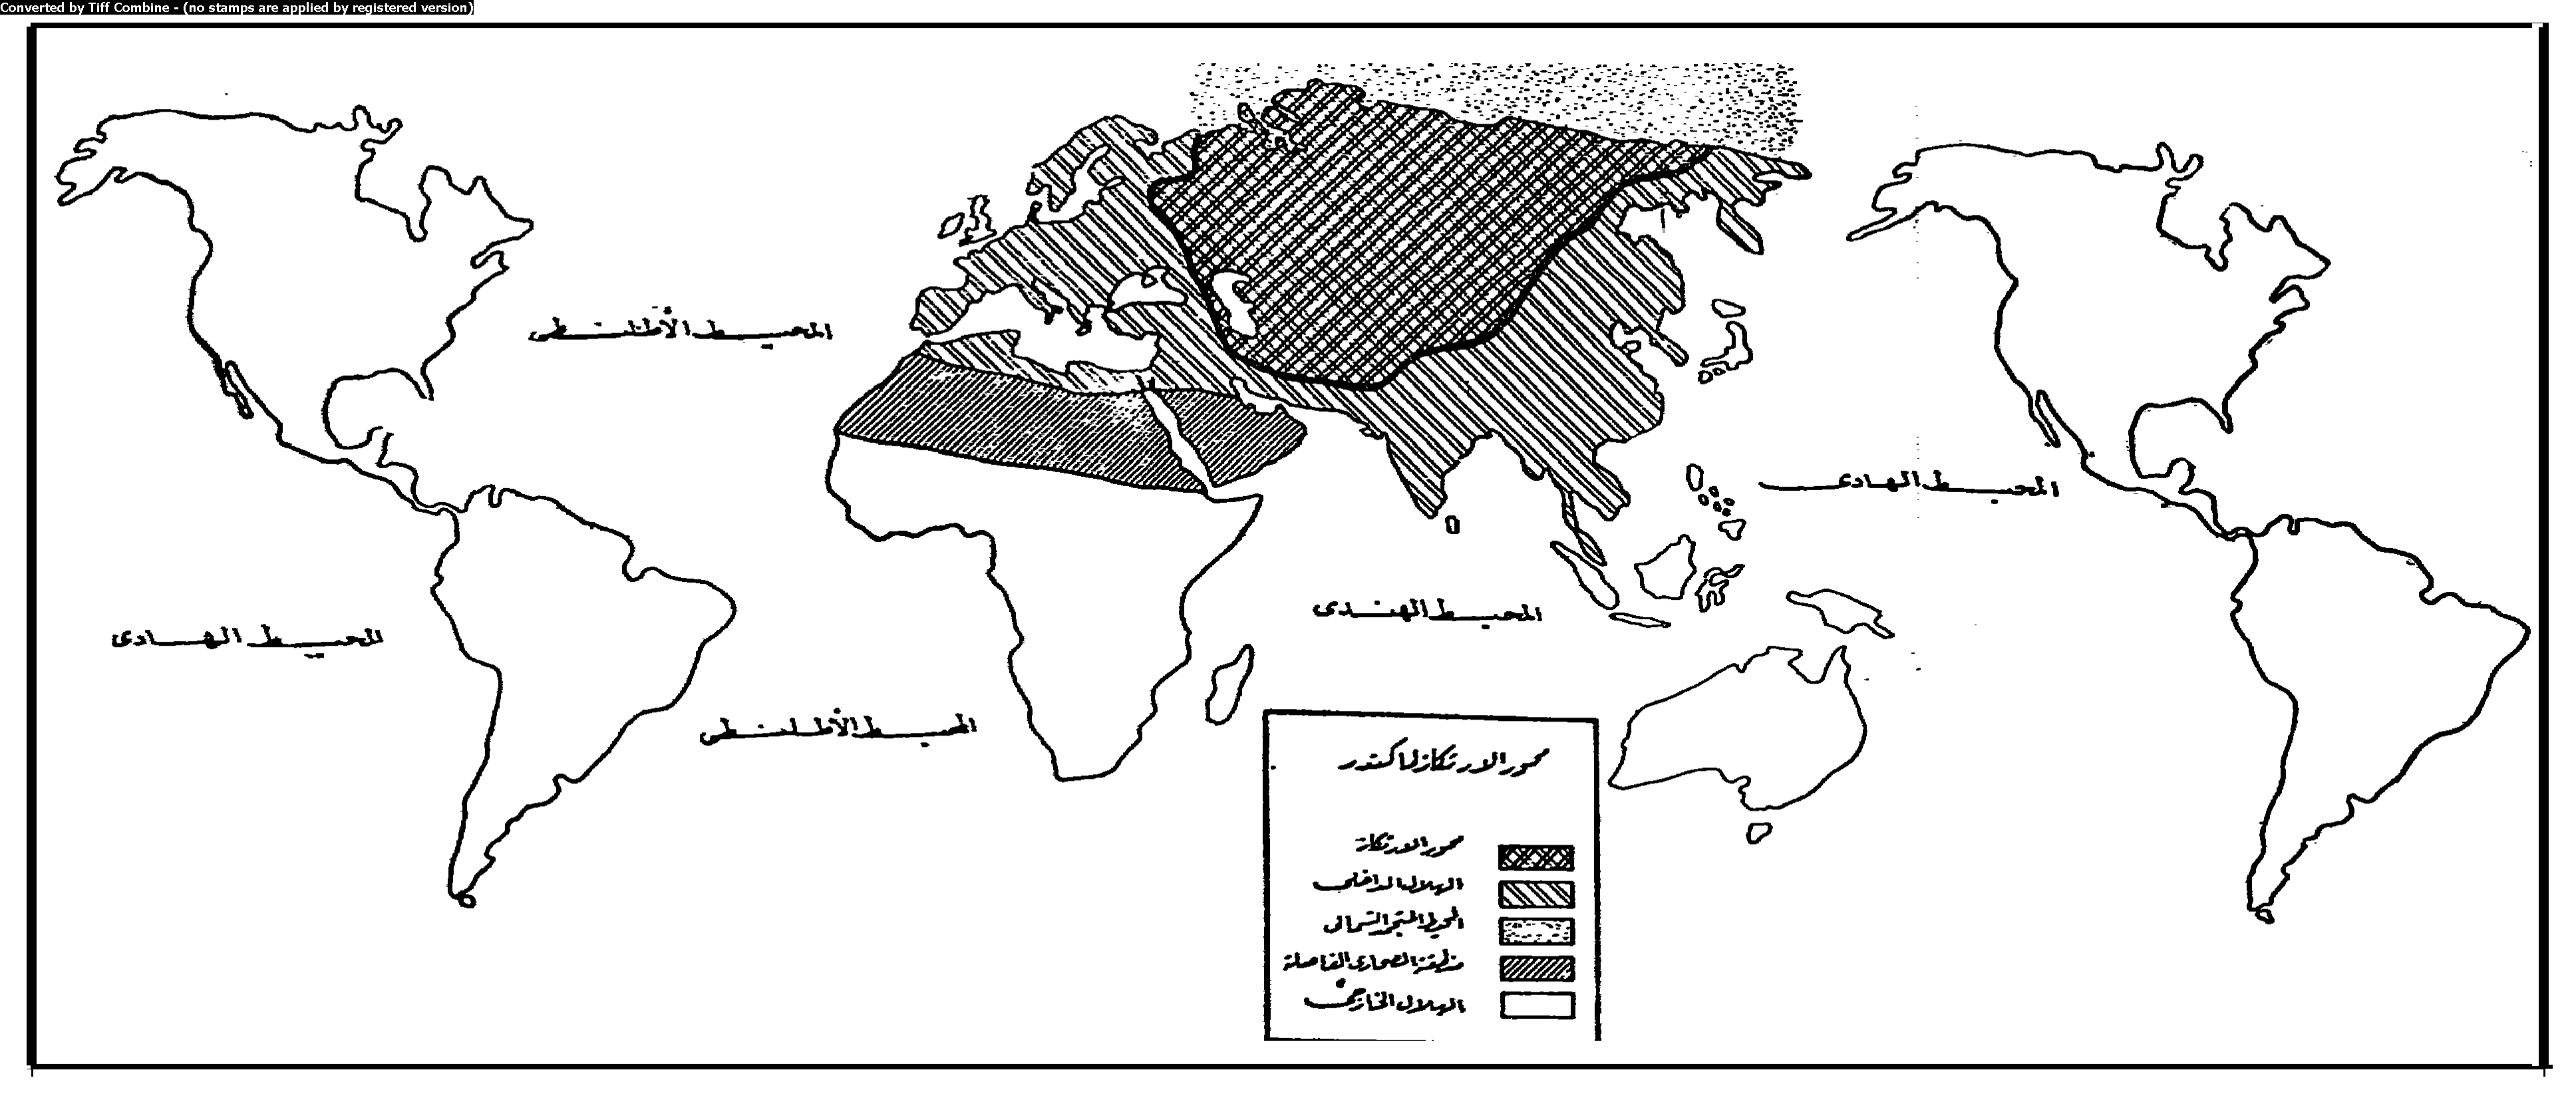 Converted by Tiff Combine - (no stamps are applied by registered version)
المحيط الأطلنطى
المحيط الهادى
المحيط الهندى
المحيط الهادى
المحيط الأطلنطى
محور الارتكاز لماكندر
محور الارتكاز
الهلال الداخلى
المحيط المتجمد الشمالى
منطقة الصحارى الفاصلة
الهلال الخارجى